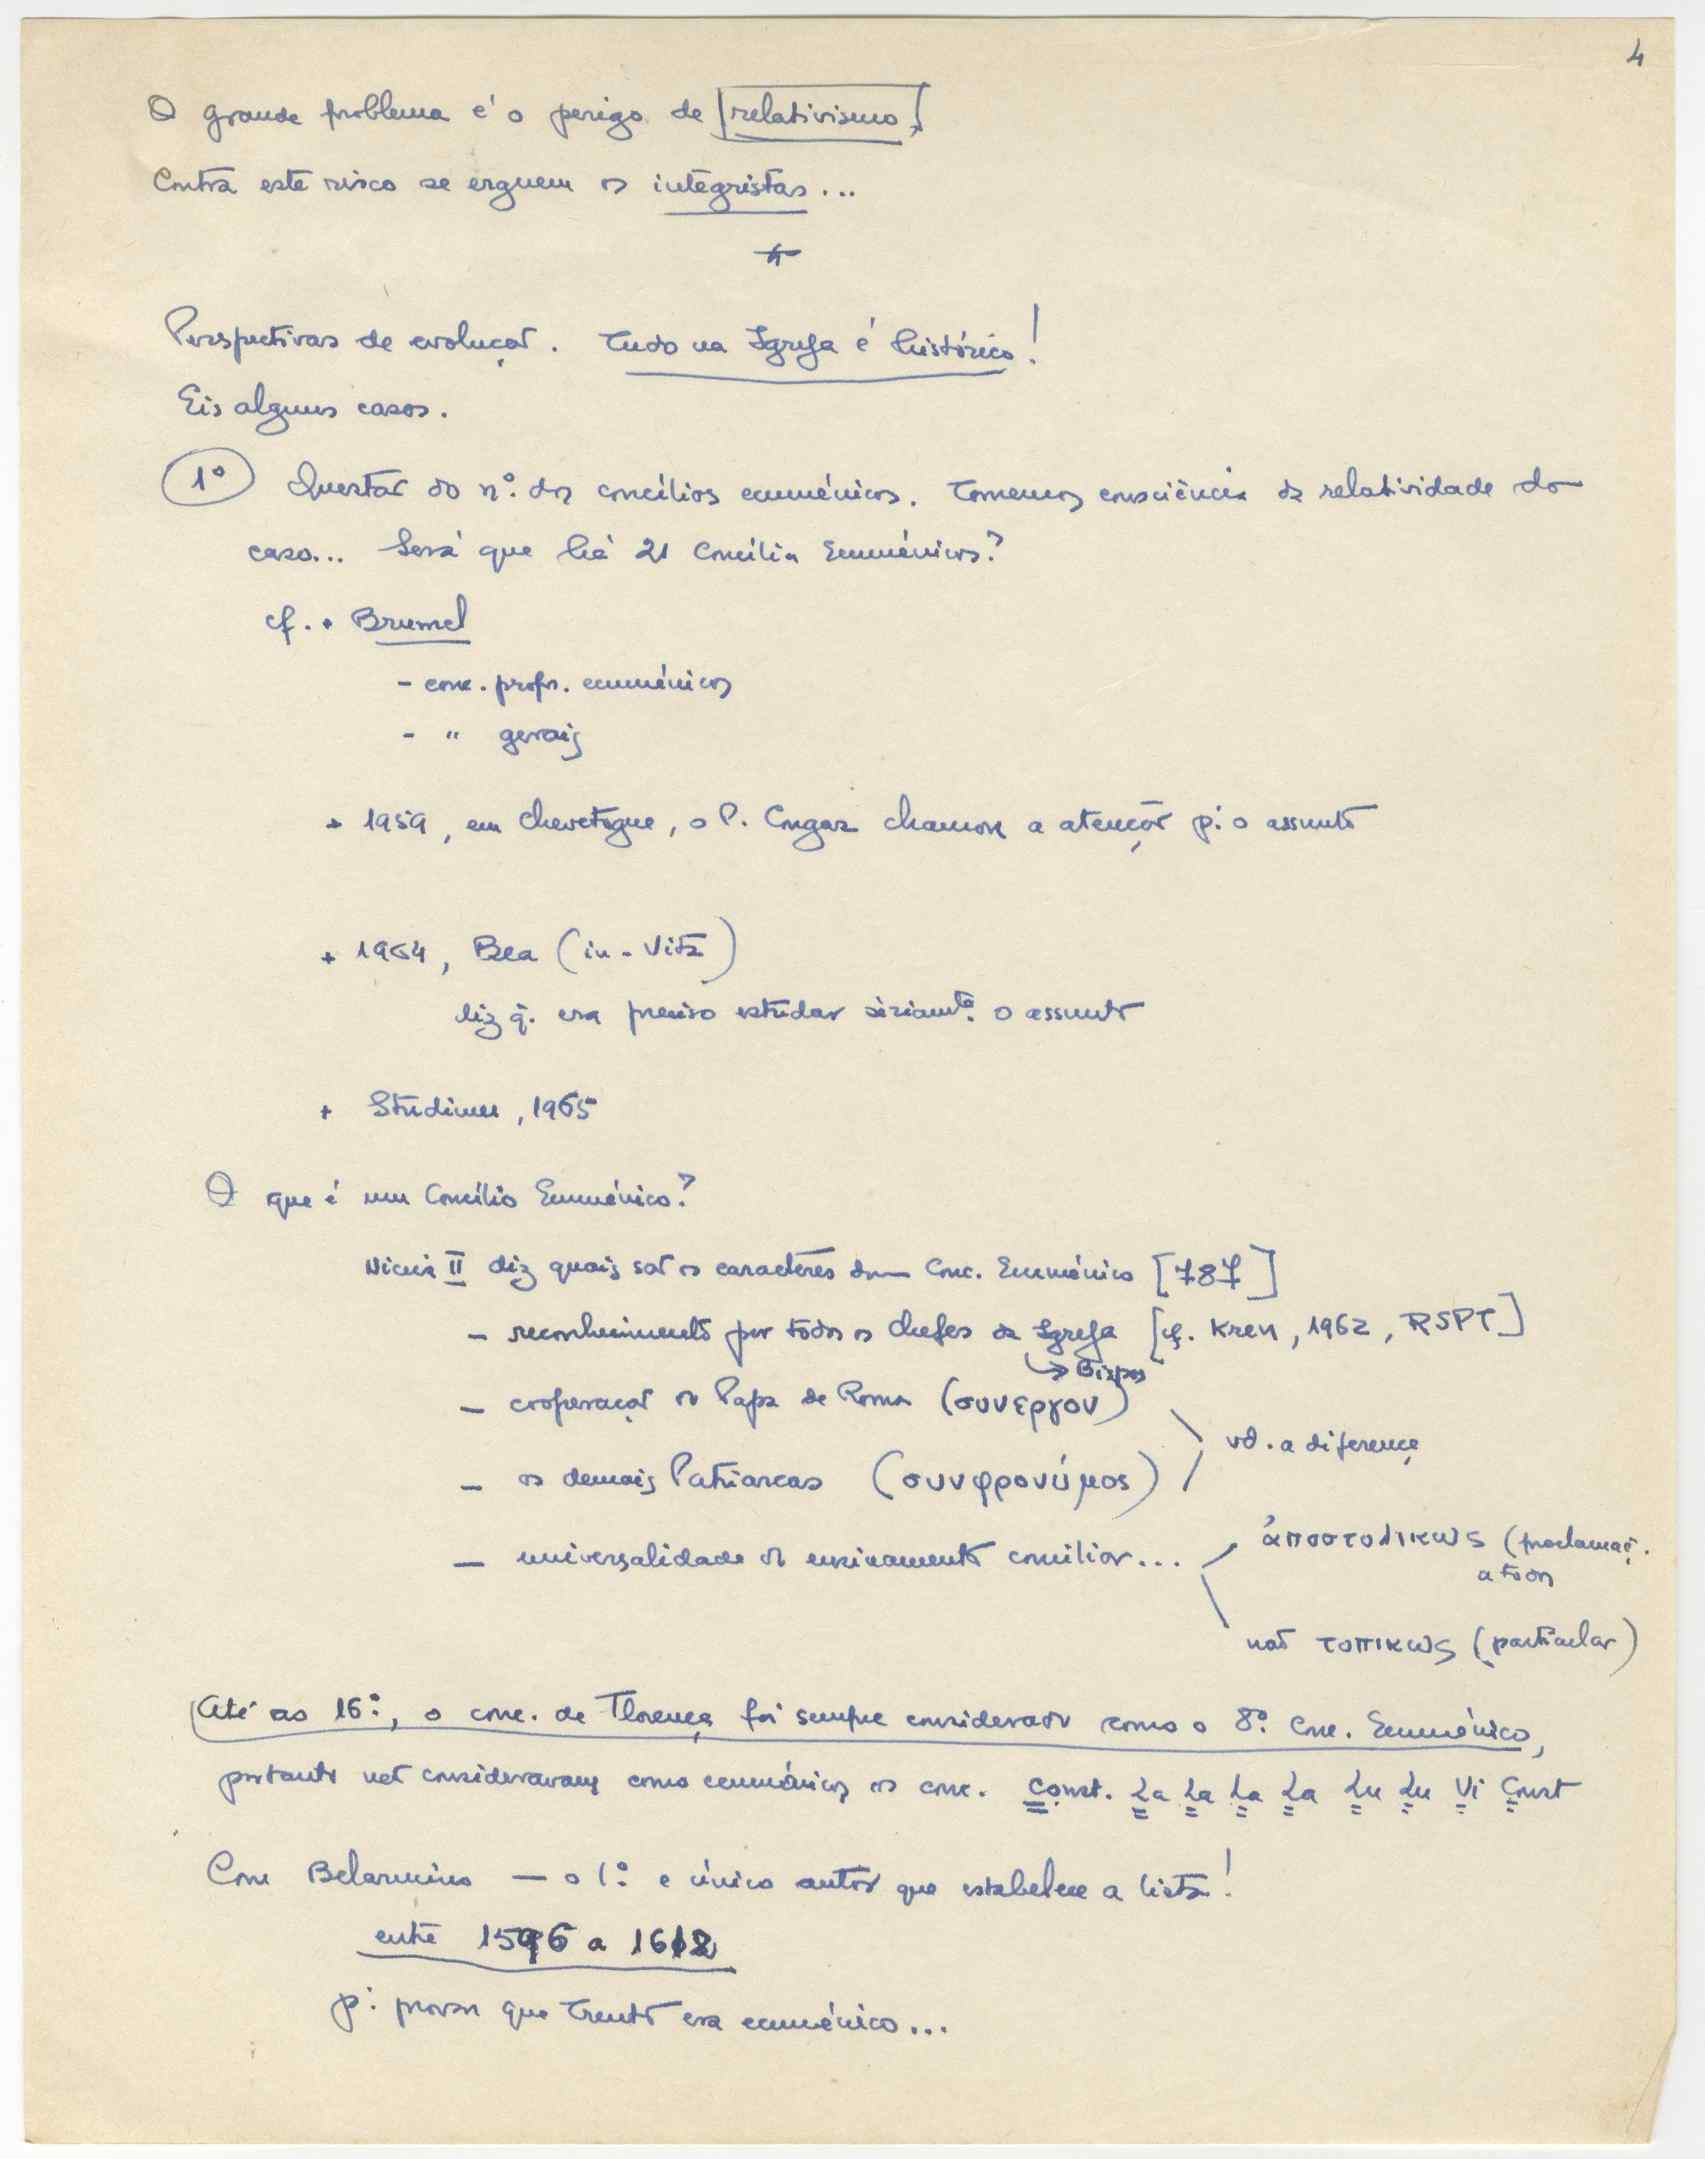 4
O grande problema é o perigo de relativismo.
Contra este risco se erguem os integristas...
*
Perspectivas de evolução. Tudo na Igreja é histórico!
Eis alguns casos.
1º Questão do nº. dos concílios ecuménicos. Tomemos consciência da relatividade do
caso... Será que há 21 Concílios Ecuménicos?
cf. + Brumel
- conc. propr. ecuménicos
- " gerais
+ 1959, em Chevetogne, o P. Congar chamou a atenção p. o assunto
+ 1964, Bea (in - Vita)
diz q. era preciso estudar sèriamte. o assunto
+ Studium, 1965
O que é um Concílio Ecuménico?
Niceia II diz quais são os caracteres dum Conc. Ecuménico [787]
- reconhecimento por todos os chefes da Igreja [cf. Kren, 1962, RSPT]
→ Bispos
- cooperação do Papa de Roma (συνεργον)
- os demais Patriarcas (συνφρονύμος) vd. a diferença
- universalidade do ensinamento conciliar... ἀποστολικως (proclamaç.
a todos
não τοπικως (particular)
Até ao 16º, o conc. de Florença foi sempre considerado como o 8º. Conc. Ecuménico,
portanto não consideravam como ecuménicos os conc. Const. La La La La Lu Lu Vi Const
Com Belarmino — o 1º e único autor que estabelece a lista!
entre 1596 a 1612
p. provar que Trento era ecuménico...